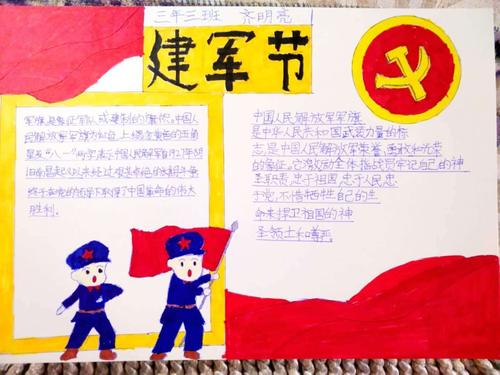 三年三班 齐明亮
建军节
军旗是象征军队或建制的旗帜。中国人
民解放军军旗为红色,上缀金黄色的五角
星及“八一”两字,表示中国人民解放军自1927年8月
1日南昌起义以来经过
终于在党的领导下取得了中国革命的伟大
胜利。
中国人民解放军军旗
是中华人民共和国武装力量的标
志,是中国人民解放军荣誉、勇敢和光荣
的象征。它激励全体指战员牢记自己的神
圣职责,忠于祖国,忠于人民,忠
于党,不惜牺牲自己的生
命来捍卫祖国的神
圣领土和尊严。